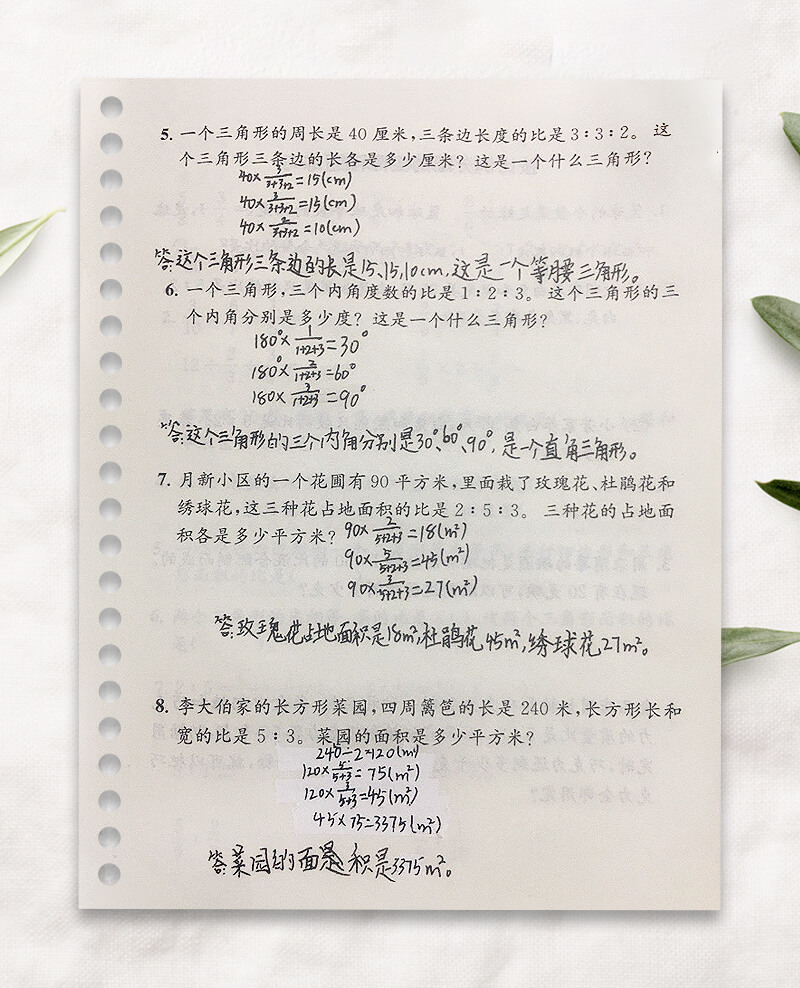 5. 一个三角形的周长是 40 厘米,三条边长度的比是 3∶3∶2。 这
个三角形三条边的长各是多少厘米? 这是一个什么三角形?
40×3/(3+3+2)=15(cm)
40×3/(3+3+2)=15(cm)
40×2/(3+3+2)=10(cm)
答:这个三角形三条边的长是15、15、10cm,这是一个等腰三角形。
6. 一个三角形,三个内角度数的比是 1∶2∶3。 这个三角形的三
个内角分别是多少度? 这是一个什么三角形?
180°×1/(1+2+3)=30°
180°×2/(1+2+3)=60°
180×3/(1+2+3)=90°
答:这个三角形的三个内角分别是30°、60°、90°,是一个直角三角形。
7. 月新小区的一个花圃有 90 平方米,里面栽了玫瑰花、杜鹃花和
绣球花,这三种花占地面积的比是 2∶5∶3。 三种花的占地面
积各是多少平方米? 90×2/(5+2+3)=18(m²)
90×5/(5+2+3)=45(m²)
90×3/(5+2+3)=27(m²)
答:玫瑰花占地面积是18m²,杜鹃花45m²,绣球花27m²。
8. 李大伯家的长方形菜园,四周篱笆的长是 240 米,长方形长和
宽的比是 5∶3。 菜园的面积是多少平方米?
240÷2=120(m)
120×5/(5+3)=75(m²)
120×3/(5+3)=45(m²)
45×75=3375(m²)
答:菜园的面积是3375m²。